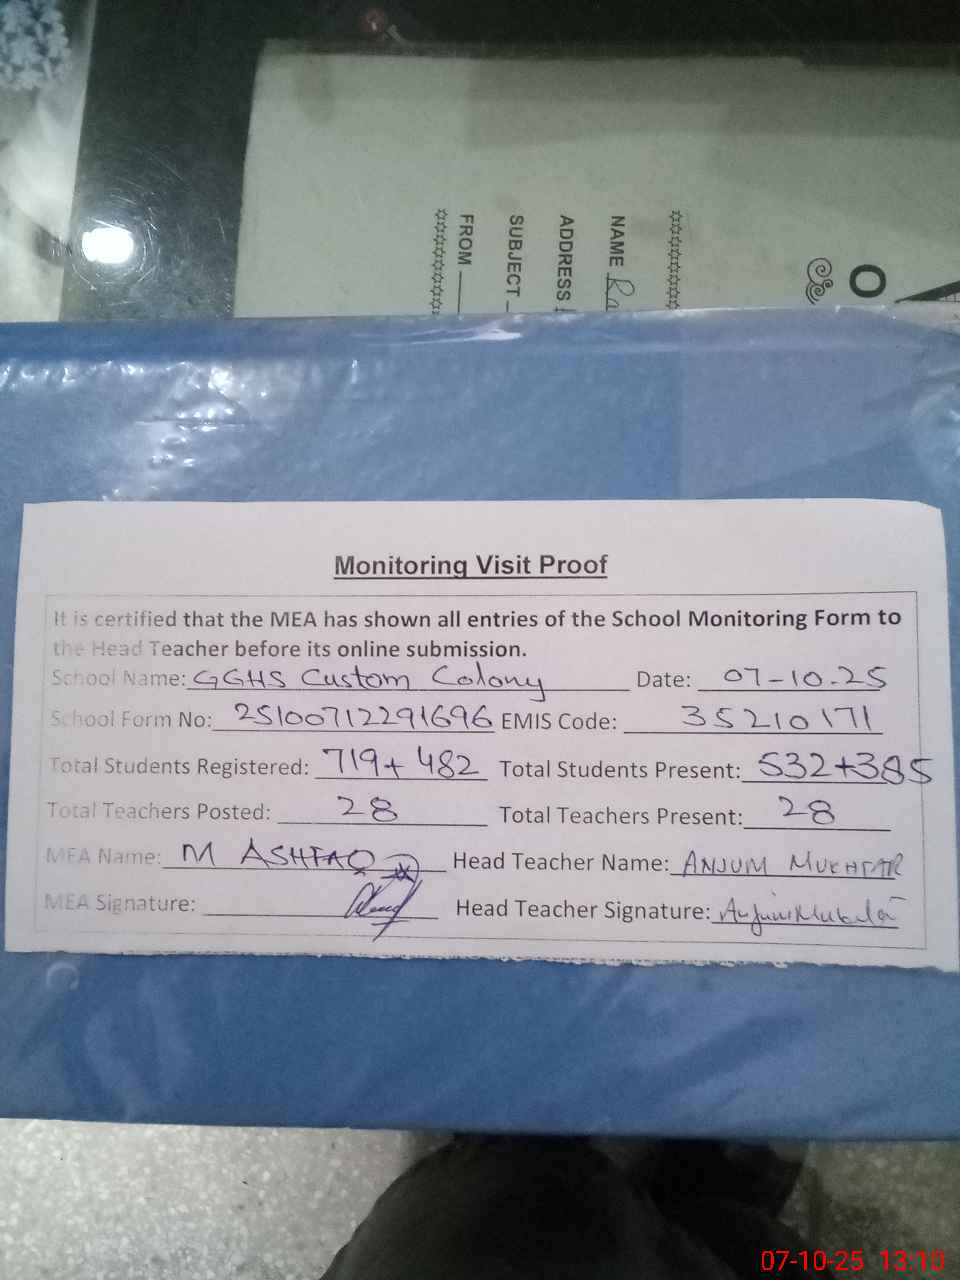 FROM
SUBJECT
ADDRESS
NAME
O
Monitoring Visit Proof
It is certified that the MEA has shown all entries of the School Monitoring Form to
the Head Teacher before its online submission.
School Name: GGHS Custom Colony Date: 07-10-25
School Form No: 25100712291696 EMIS Code: 35210171
Total Students Registered: 719+ 482 Total Students Present: 532+385
Total Teachers Posted: 28 Total Teachers Present: 28
MEA Name: M ASHFAQ Head Teacher Name: ANJUM MUKHTAR
MEA Signature: Head Teacher Signature:
07-10-25 13:10